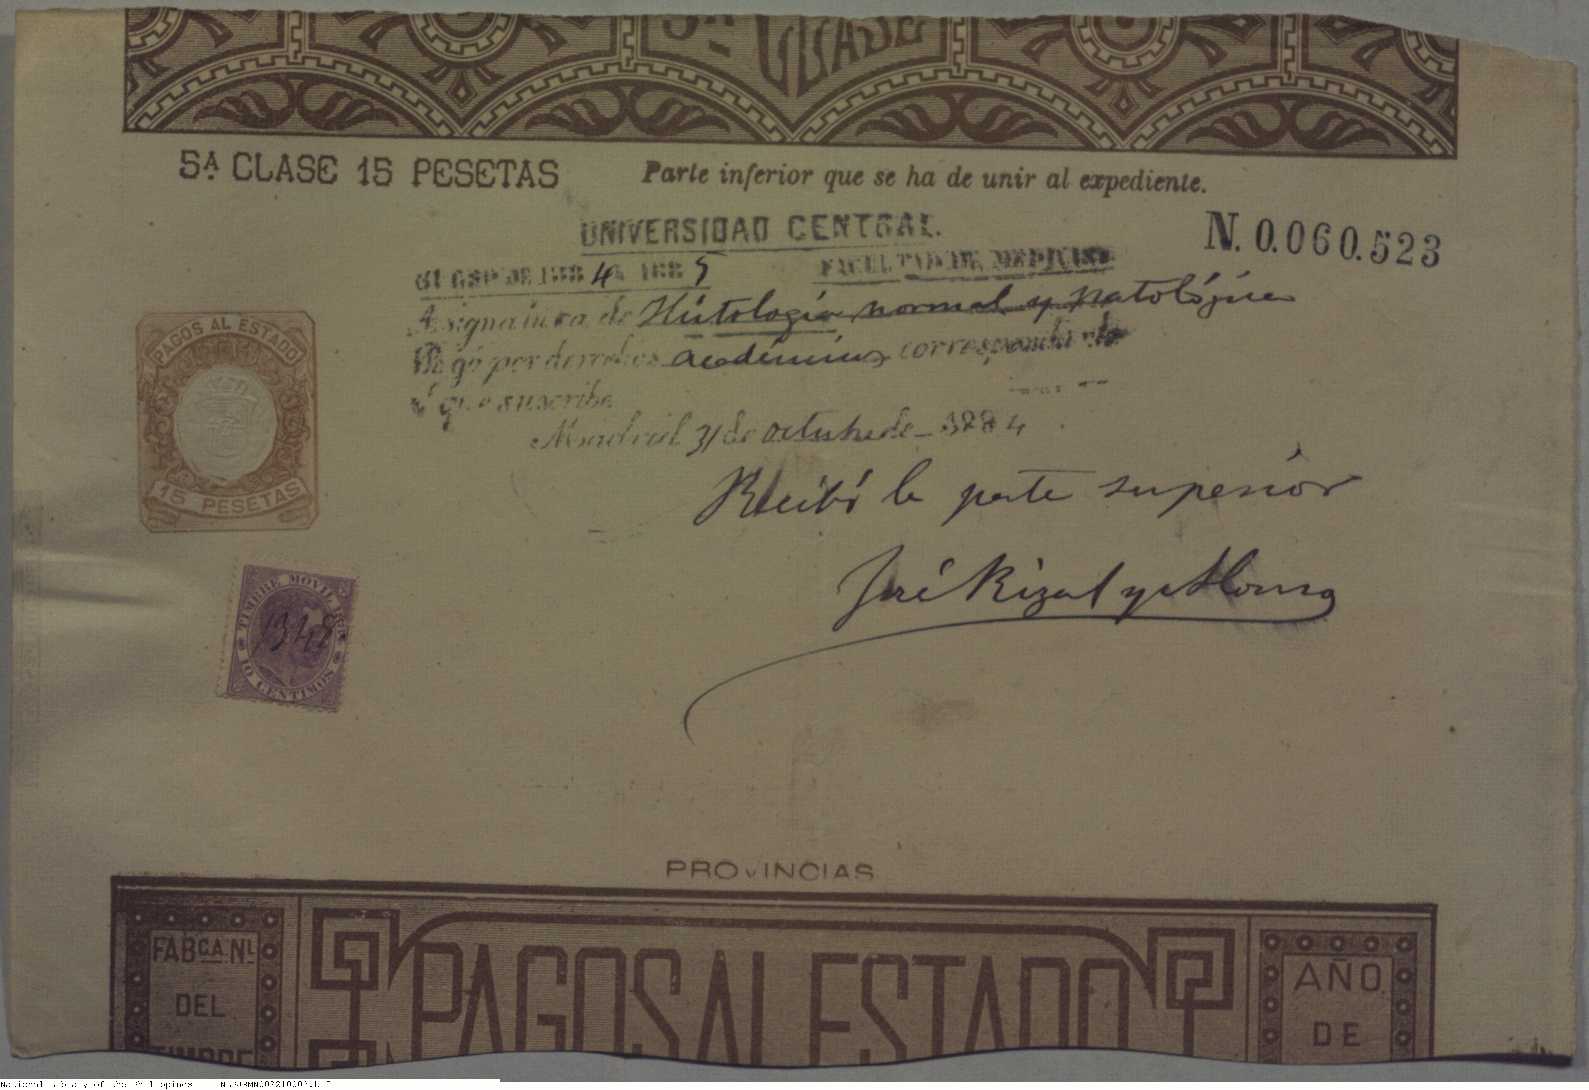 5ª CLASE
5ª CLASE 15 PESETAS
Parte inferior que se ha de unir al expediente.
N. 0.060.523
UNIVERSIDAD CENTRAL.
CURSO DE 1884 A 1885
FACULTAD DE MEDICINA
Asignatura de Histología normal y patológica
Pagó por derechos académicos correspondiente
que suscribe
Madrid 31 de octubre de 1884
Recibí la parte superior
José Rizal y Alonso
PAGOS AL ESTADO
15 PESETAS
TIMBRE MOVIL
1348
10 CENTIMOS
PROVINCIAS
FABCA. NL
DEL
TIMBRE
PAGOS AL ESTADO
AÑO
DE
National Library of the Philippines